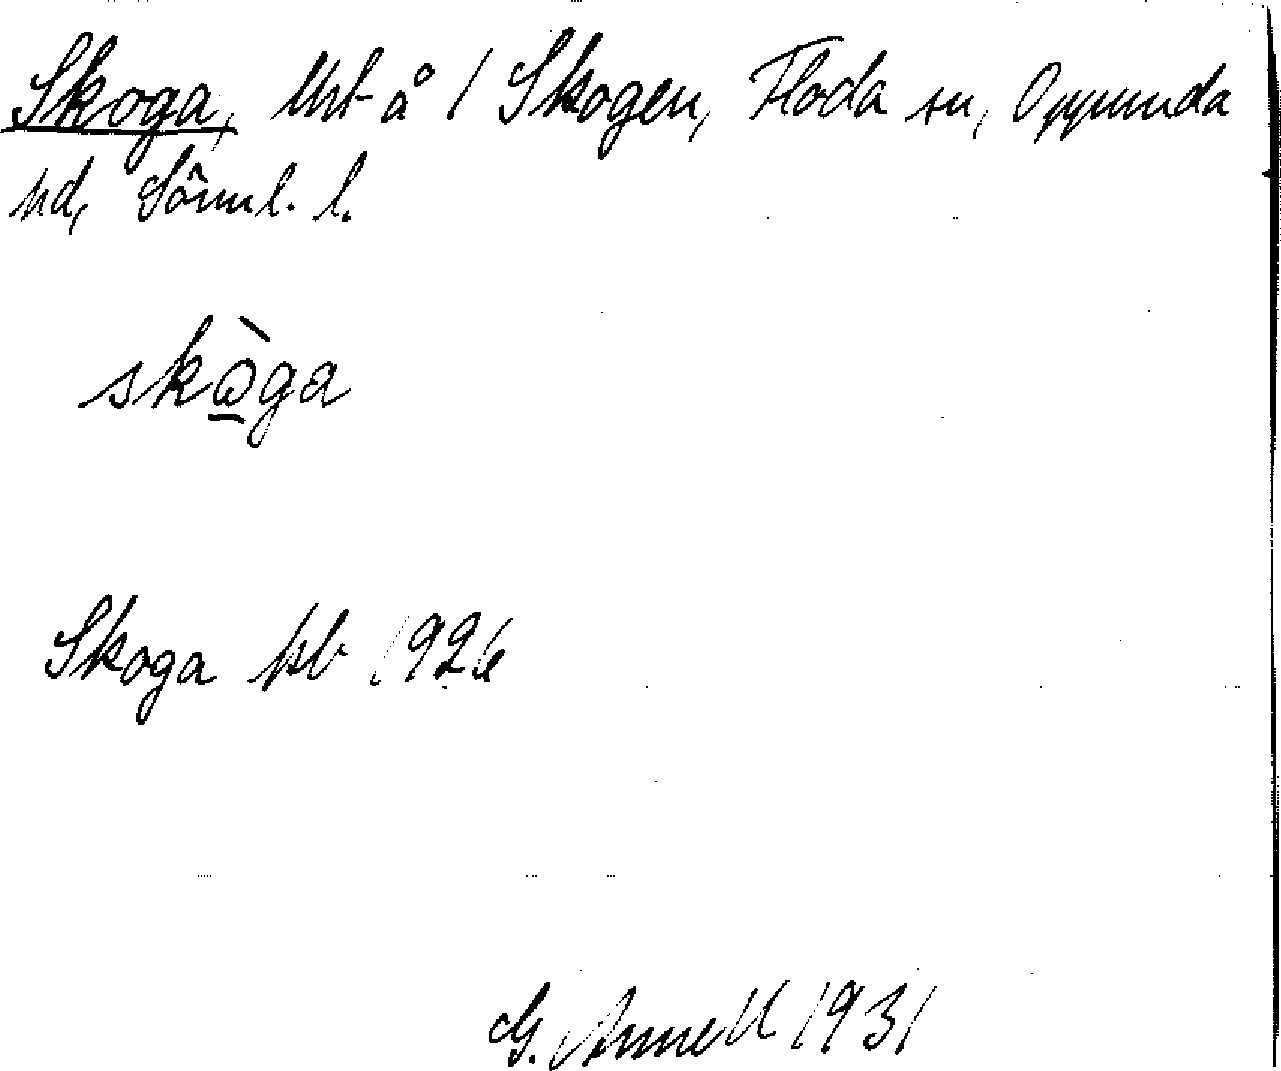 Skoga, Utst å 1 Skogen, Floda sn, Oppunda
hd, Söml. l.
skòga
Skoga hb 1926
G. Annell 1931